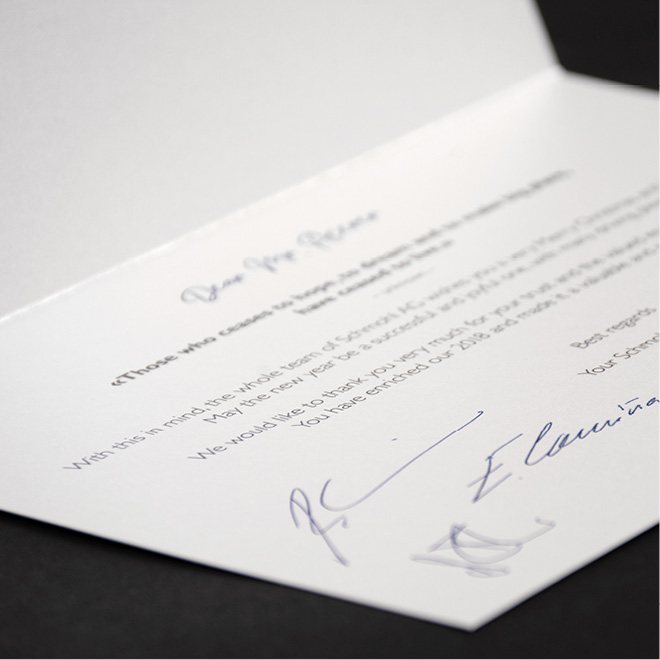 Dear Mr.
«Those who cease to hope, to dream and to make big plans,
have ceased to live.»
With this in mind, the whole team of Schmohl AG wishes you a very Merry Christmas and
May the new year be a successful and joyful one, with many
We would like to thank you very much for your trust and the valued
You have enriched our 2018 and made it a valuable and
Best regards
Your Schmohl
E. Camiña